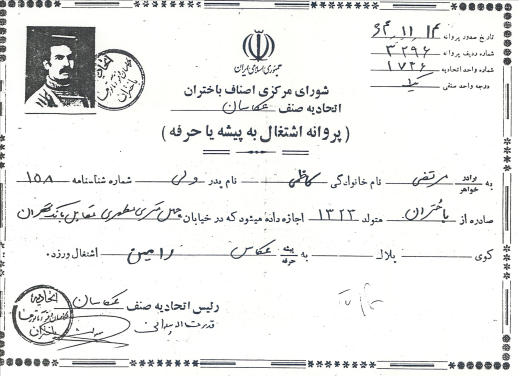 تاریخ صدور پروانه ۶۴,۱۱,۱۴
شماره ردیف پروانه ۳۲۹۶
شماره واحد اتحادیه ۱۷۲۶
درجه واحد صنفی یک
جمهوری اسلامی ایران
شورای مرکزی اصناف باختران
اتحادیه صنف عکاسان
( پروانه اشتغال به پیشه یا حرفه )
به برادر خواهر مرتضی نام خانوادگی کاظمی نام پدر ولی شماره شناسنامه ۱۵۸
صادره از باختران متولد ۱۳۲۳ اجازه داده میشود که در خیابان مطهری مقابل بانک تهران
کوی پلاک به پیشه حرفه عکاس رامین اشتغال ورزد.
رئیس اتحادیه صنف عکاسان
اتحادیه
باختران